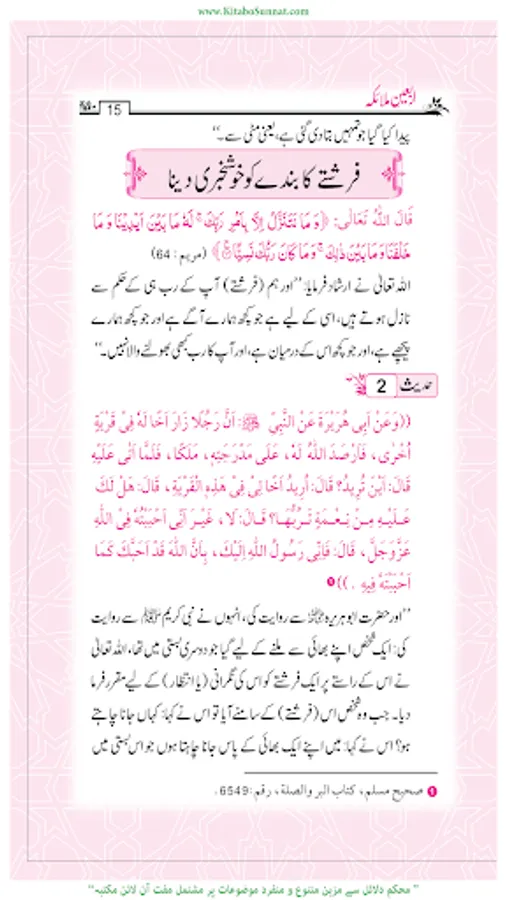 www.KitaboSunnat.com
اربعین ملائکہ
15
پیدا کیا گیا جو تمہیں بتا دی گئی ہے، یعنی مٹی سے۔‘‘
فرشتے کا بندے کو خوشخبری دینا
قَالَ اللّٰهُ تَعَالٰى: ﴿وَمَا نَتَنَزَّلُ اِلَّا بِاَمْرِ رَبِّكَ ۚ لَهٗ مَا بَيْنَ اَيْدِيْنَا وَمَا
خَلْفَنَا وَمَا بَيْنَ ذٰلِكَ ۚ وَمَا كَانَ رَبُّكَ نَسِيًّا﴾ (مریم: 64)
اللہ تعالیٰ نے ارشاد فرمایا: ’’اور ہم (فرشتے) آپ کے رب ہی کے حکم سے
نازل ہوتے ہیں، اسی کے لیے ہے جو کچھ ہمارے آگے ہے اور جو کچھ ہمارے
پیچھے ہے، اور جو کچھ اس کے درمیان ہے، اور آپ کا رب کبھی بھولنے والا نہیں۔‘‘
حدیث 2
((وَعَنْ اَبِى هُرَيْرَةَ عَنِ النَّبِيِّ ﷺ: اَنَّ رَجُلًا زَارَ اَخًا لَهٗ فِىْ قَرْيَةٍ
اُخْرٰى، فَاَرْصَدَ اللّٰهُ لَهٗ، عَلٰى مَدْرَجَتِهٖ، مَلَكًا، فَلَمَّا اَتٰى عَلَيْهِ
قَالَ: اَيْنَ تُرِيْدُ؟ قَالَ: اُرِيْدُ اَخًا لِىْ فِىْ هٰذِهِ الْقَرْيَةِ، قَالَ: هَلْ لَكَ
عَلَيْهِ مِنْ نِعْمَةٍ تَرُبُّهَا؟ قَالَ: لَا، غَيْرَ اَنِّى اَحْبَبْتُهٗ فِى اللّٰهِ
عَزَّوَجَلَّ، قَالَ: فَاِنِّى رَسُوْلُ اللّٰهِ اِلَيْكَ، بِاَنَّ اللّٰهَ قَدْ اَحَبَّكَ كَمَا
اَحْبَبْتَهٗ فِيْهِ.)) ❶
’’اور حضرت ابو ہریرہ رضی اللہ عنہ سے روایت کی، انہوں نے نبی کریم ﷺ سے روایت
کی: ایک شخص اپنے بھائی سے ملنے کے لیے گیا جو دوسری بستی میں تھا، اللہ تعالیٰ
نے اس کے راستے پر ایک فرشتے کو اس کی نگرانی (یا انتظار) کے لیے مقرر فرما
دیا۔ جب وہ شخص اس (فرشتے) کے سامنے آیا تو اس نے کہا: کہاں جانا چاہتے
ہو؟ اس نے کہا: میں اپنے ایک بھائی کے پاس جانا چاہتا ہوں جو اس بستی میں
❶ صحیح مسلم، کتاب البر والصلة، رقم: 6549.
”محکم دلائل سے مزین متنوع و منفرد موضوعات پر مشتمل مفت آن لائن مکتبہ“